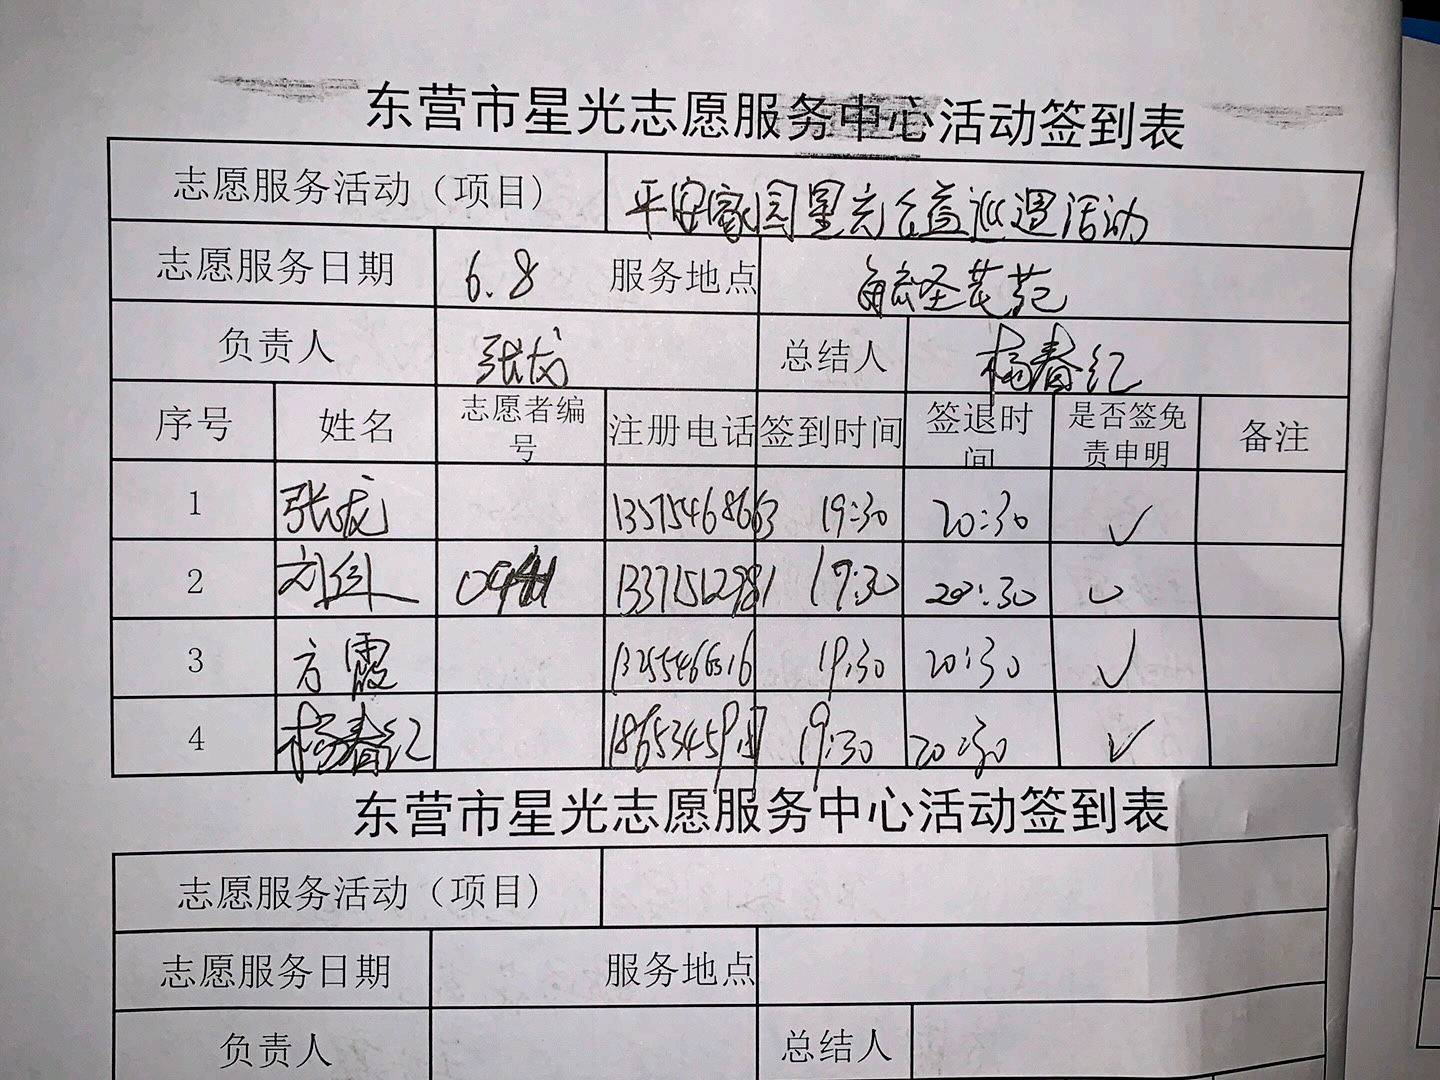 东营市星光志愿服务中心活动签到表
志愿服务活动（项目） 平安家园星光公益巡逻活动
志愿服务日期 6.8 服务地点
负责人 张龙 总结人 杨春红
序号 姓名 志愿者编号 注册电话 签到时间 签退时间 是否签免责申明 备注
1 张龙 13575468663 19:30 20:30 ✓
2 13371512981 19:30 20:30 ✓
3 方霞 13255466316 19:30 20:30 ✓
4 杨春红 19:30 20:30 ✓
东营市星光志愿服务中心活动签到表
志愿服务活动（项目）
志愿服务日期 服务地点
负责人 总结人